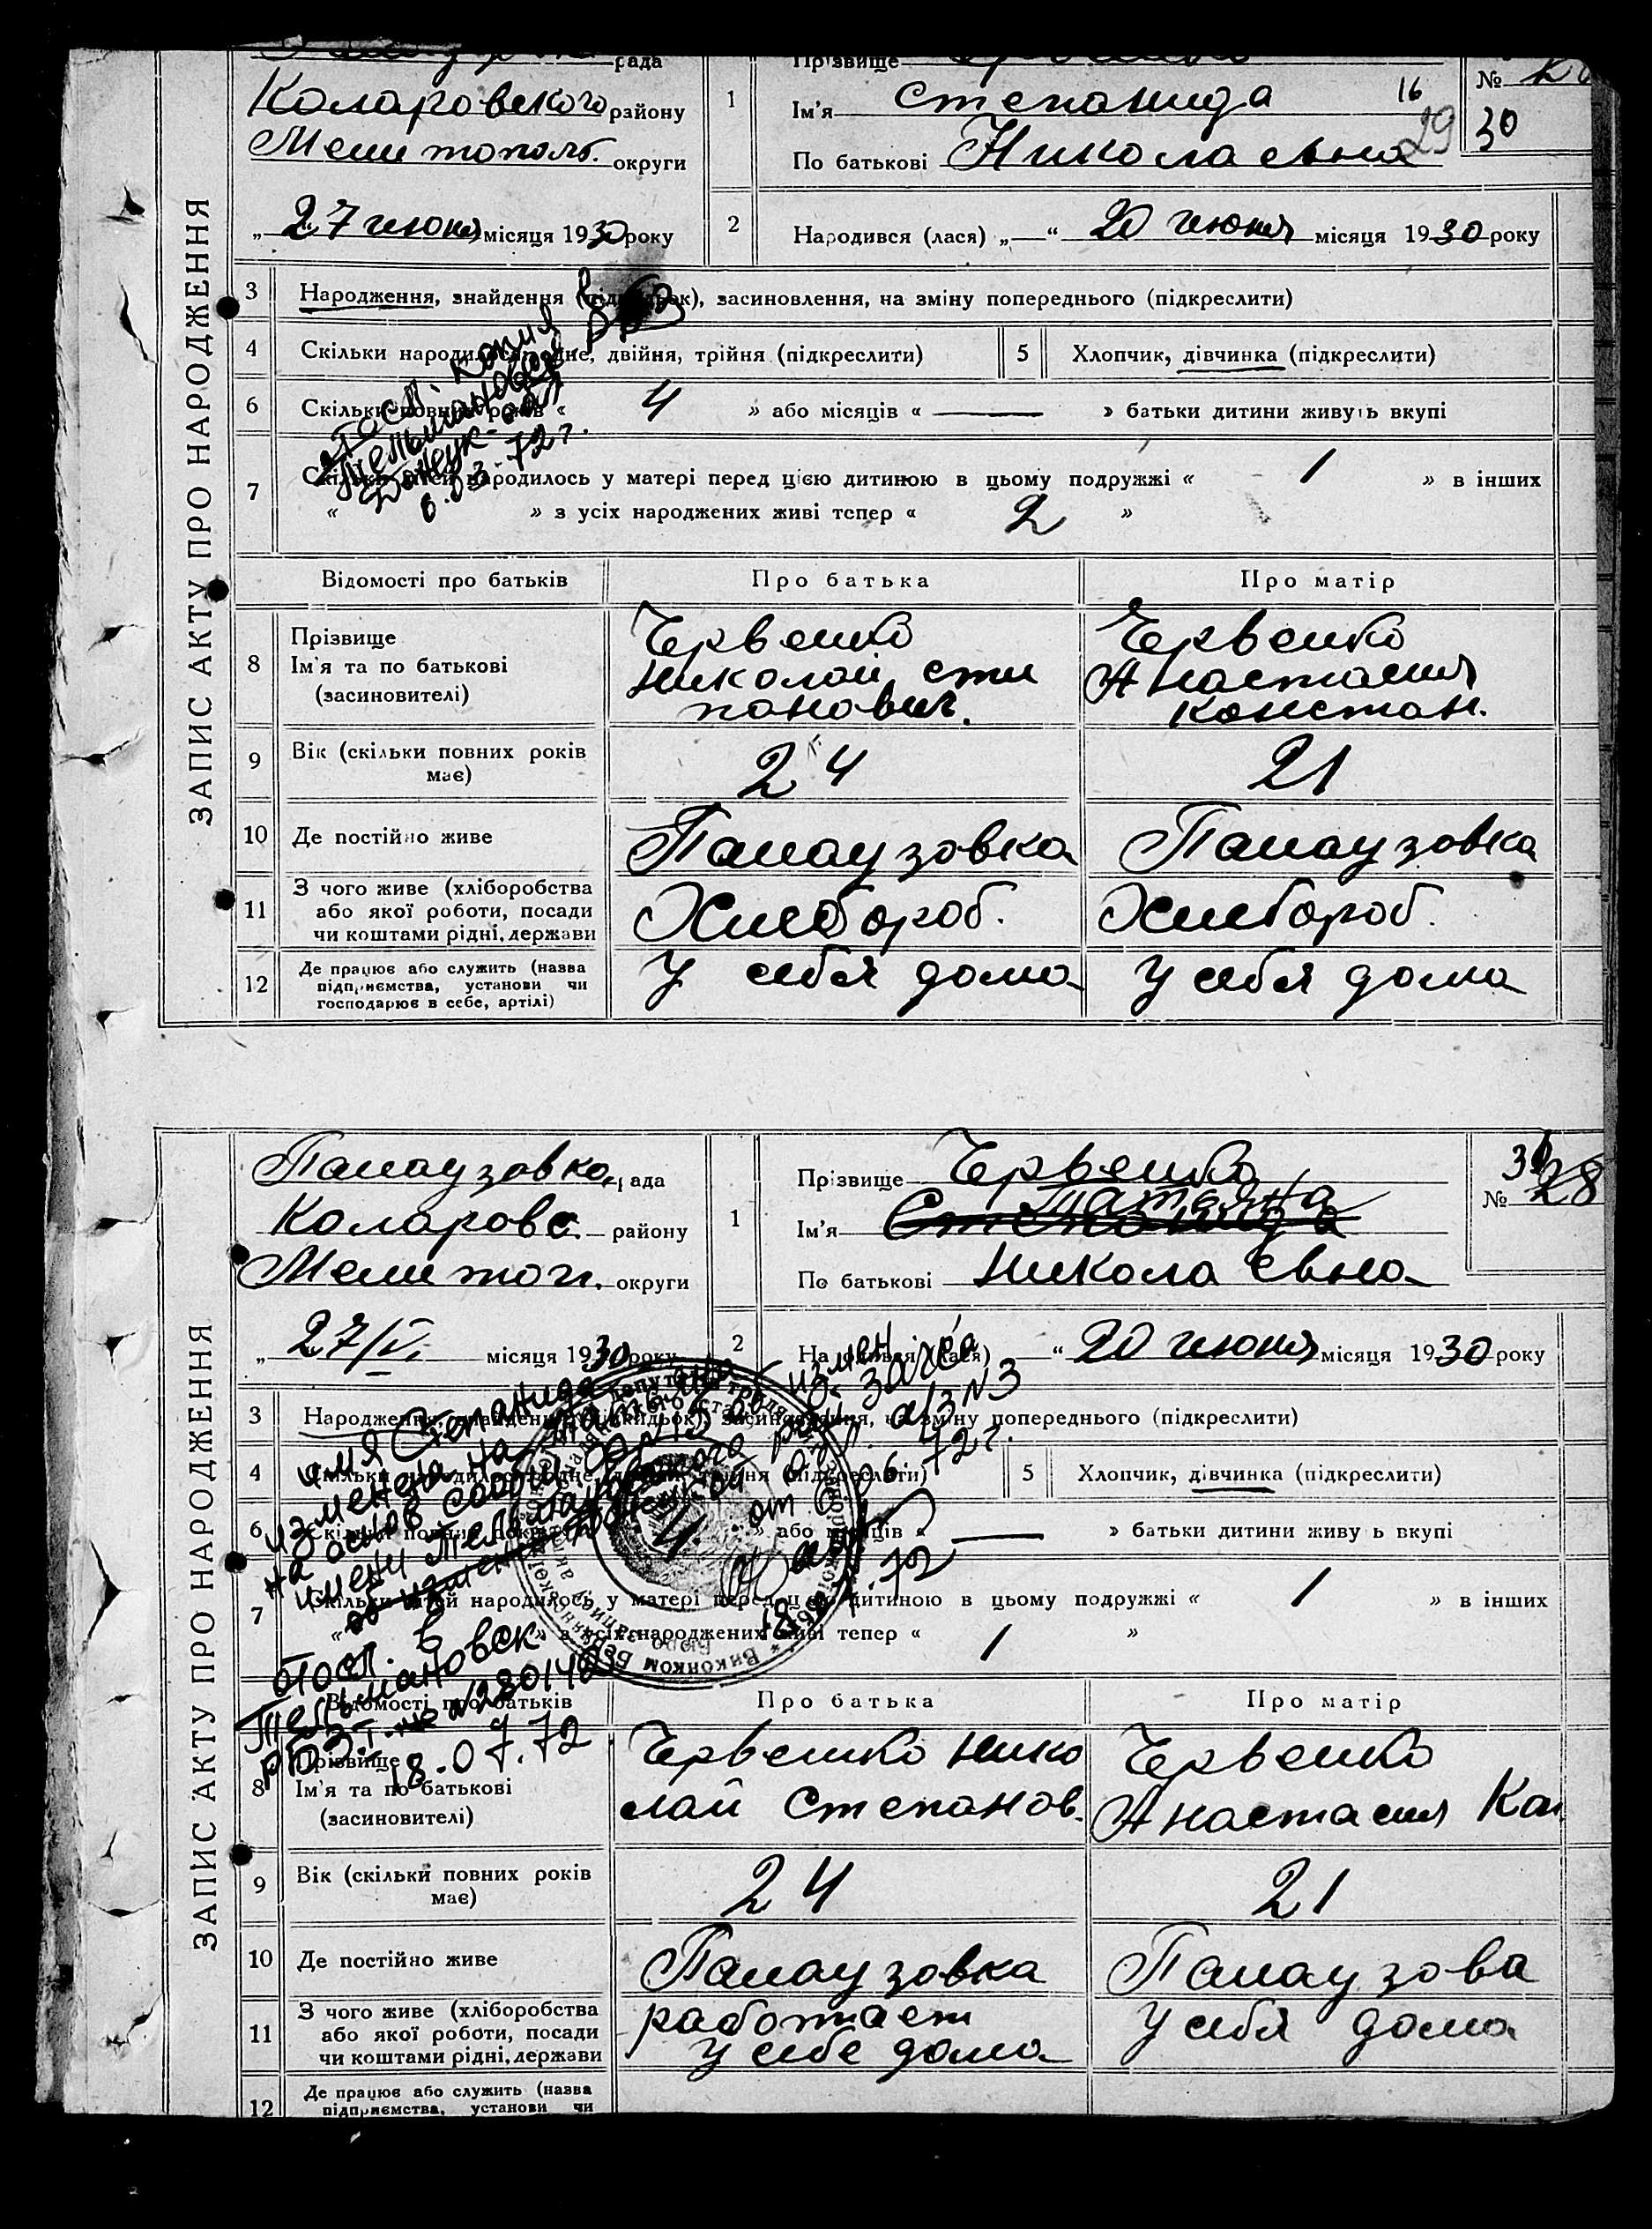 ЗАПИС АКТУ ПРО НАРОДЖЕННЯ
рада
Коларовского району
Мелитополь. округи
„ 27 июня місяця 1930 року
1
Прізвище
Ім'я Степанида
По батькові Николаевна
16
29
№
30
2
Народився (лася) „ — “ 20 июня місяця 1930 року
3 Народження, знайдення (підкидьок), засиновлення, на зміну попереднього (підкреслити)
4 Скільки народилось: одне, двійня, трійня (підкреслити)
5 Хлопчик, дівчинка (підкреслити)
6 Скільки повних років « 4 » або місяців « — » батьки дитини живуть вкупі
7 Скільки дітей народилось у матері перед цією дитиною в цьому подружжі « 1 » в інших
« » з усіх народжених живі тепер « 2 »
Посл. копия в
Тельмановск. РБЗ
Донецк. обл
6.03.72 г.
Відомості про батьків Про батька Про матір
8 Прізвище
Ім'я та по батькові
(засиновителі)
Червенко
Николай Сти
панович.
Червенко
Анастасия
Констан.
9 Вік (скільки повних років має) 24 21
10 Де постійно живе Палаузовка Палаузовка
11 З чого живе (хліборобства
або якої роботи, посади
чи коштами рідні, держави
Хлебороб. Хлебороб.
12 Де працює або служить (назва
підприємства, установи чи
господарює в себе, артілі)
У себя дома У себя дома
ЗАПИС АКТУ ПРО НАРОДЖЕННЯ
Палаузовка рада
Коларовс. району
Мелитоп. округи
„ 27/VI. місяця 1930 року
1
Прізвище Червенко
Татьяна
Ім'я Степанида
По батькові Николаевна
№ 28
2
Народився (лася) “ 20 июня місяця 1930 року
3 Народження, знайдення (підкидьок), засиновлення, на зміну попереднього (підкреслити)
4 Скільки народилось: одне, двійня, трійня (підкреслити)
5 Хлопчик, дівчинка (підкреслити)
6 Скільки повних років « 4 » або місяців « — » батьки дитини живуть вкупі
7 Скільки дітей народилось у матері перед цією дитиною в цьому подружжі « 1 » в інших
« » з усіх народжених живі тепер « 1 »
имя Степанида
изменена на Татьяна
на основ сообщ. об измен
имени Тельмановского рай. загса
Донецкой обл. а/з N 3
от 6.06.72 г.
18.07.72
Посл. в
Тельмановск
РБЗ
18.07.72
Відомості про батьків Про батька Про матір
8 Прізвище
Ім'я та по батькові
(засиновителі)
Червенко Нико
лай Степанов.
Червенко
Анастасия Кон
9 Вік (скільки повних років має) 24 21
10 Де постійно живе Палаузовка Палаузова
11 З чого живе (хліборобства
або якої роботи, посади
чи коштами рідні, держави
работает
у себе дома
У себя дома
12 Де працює або служить (назва
підприємства, установи чи